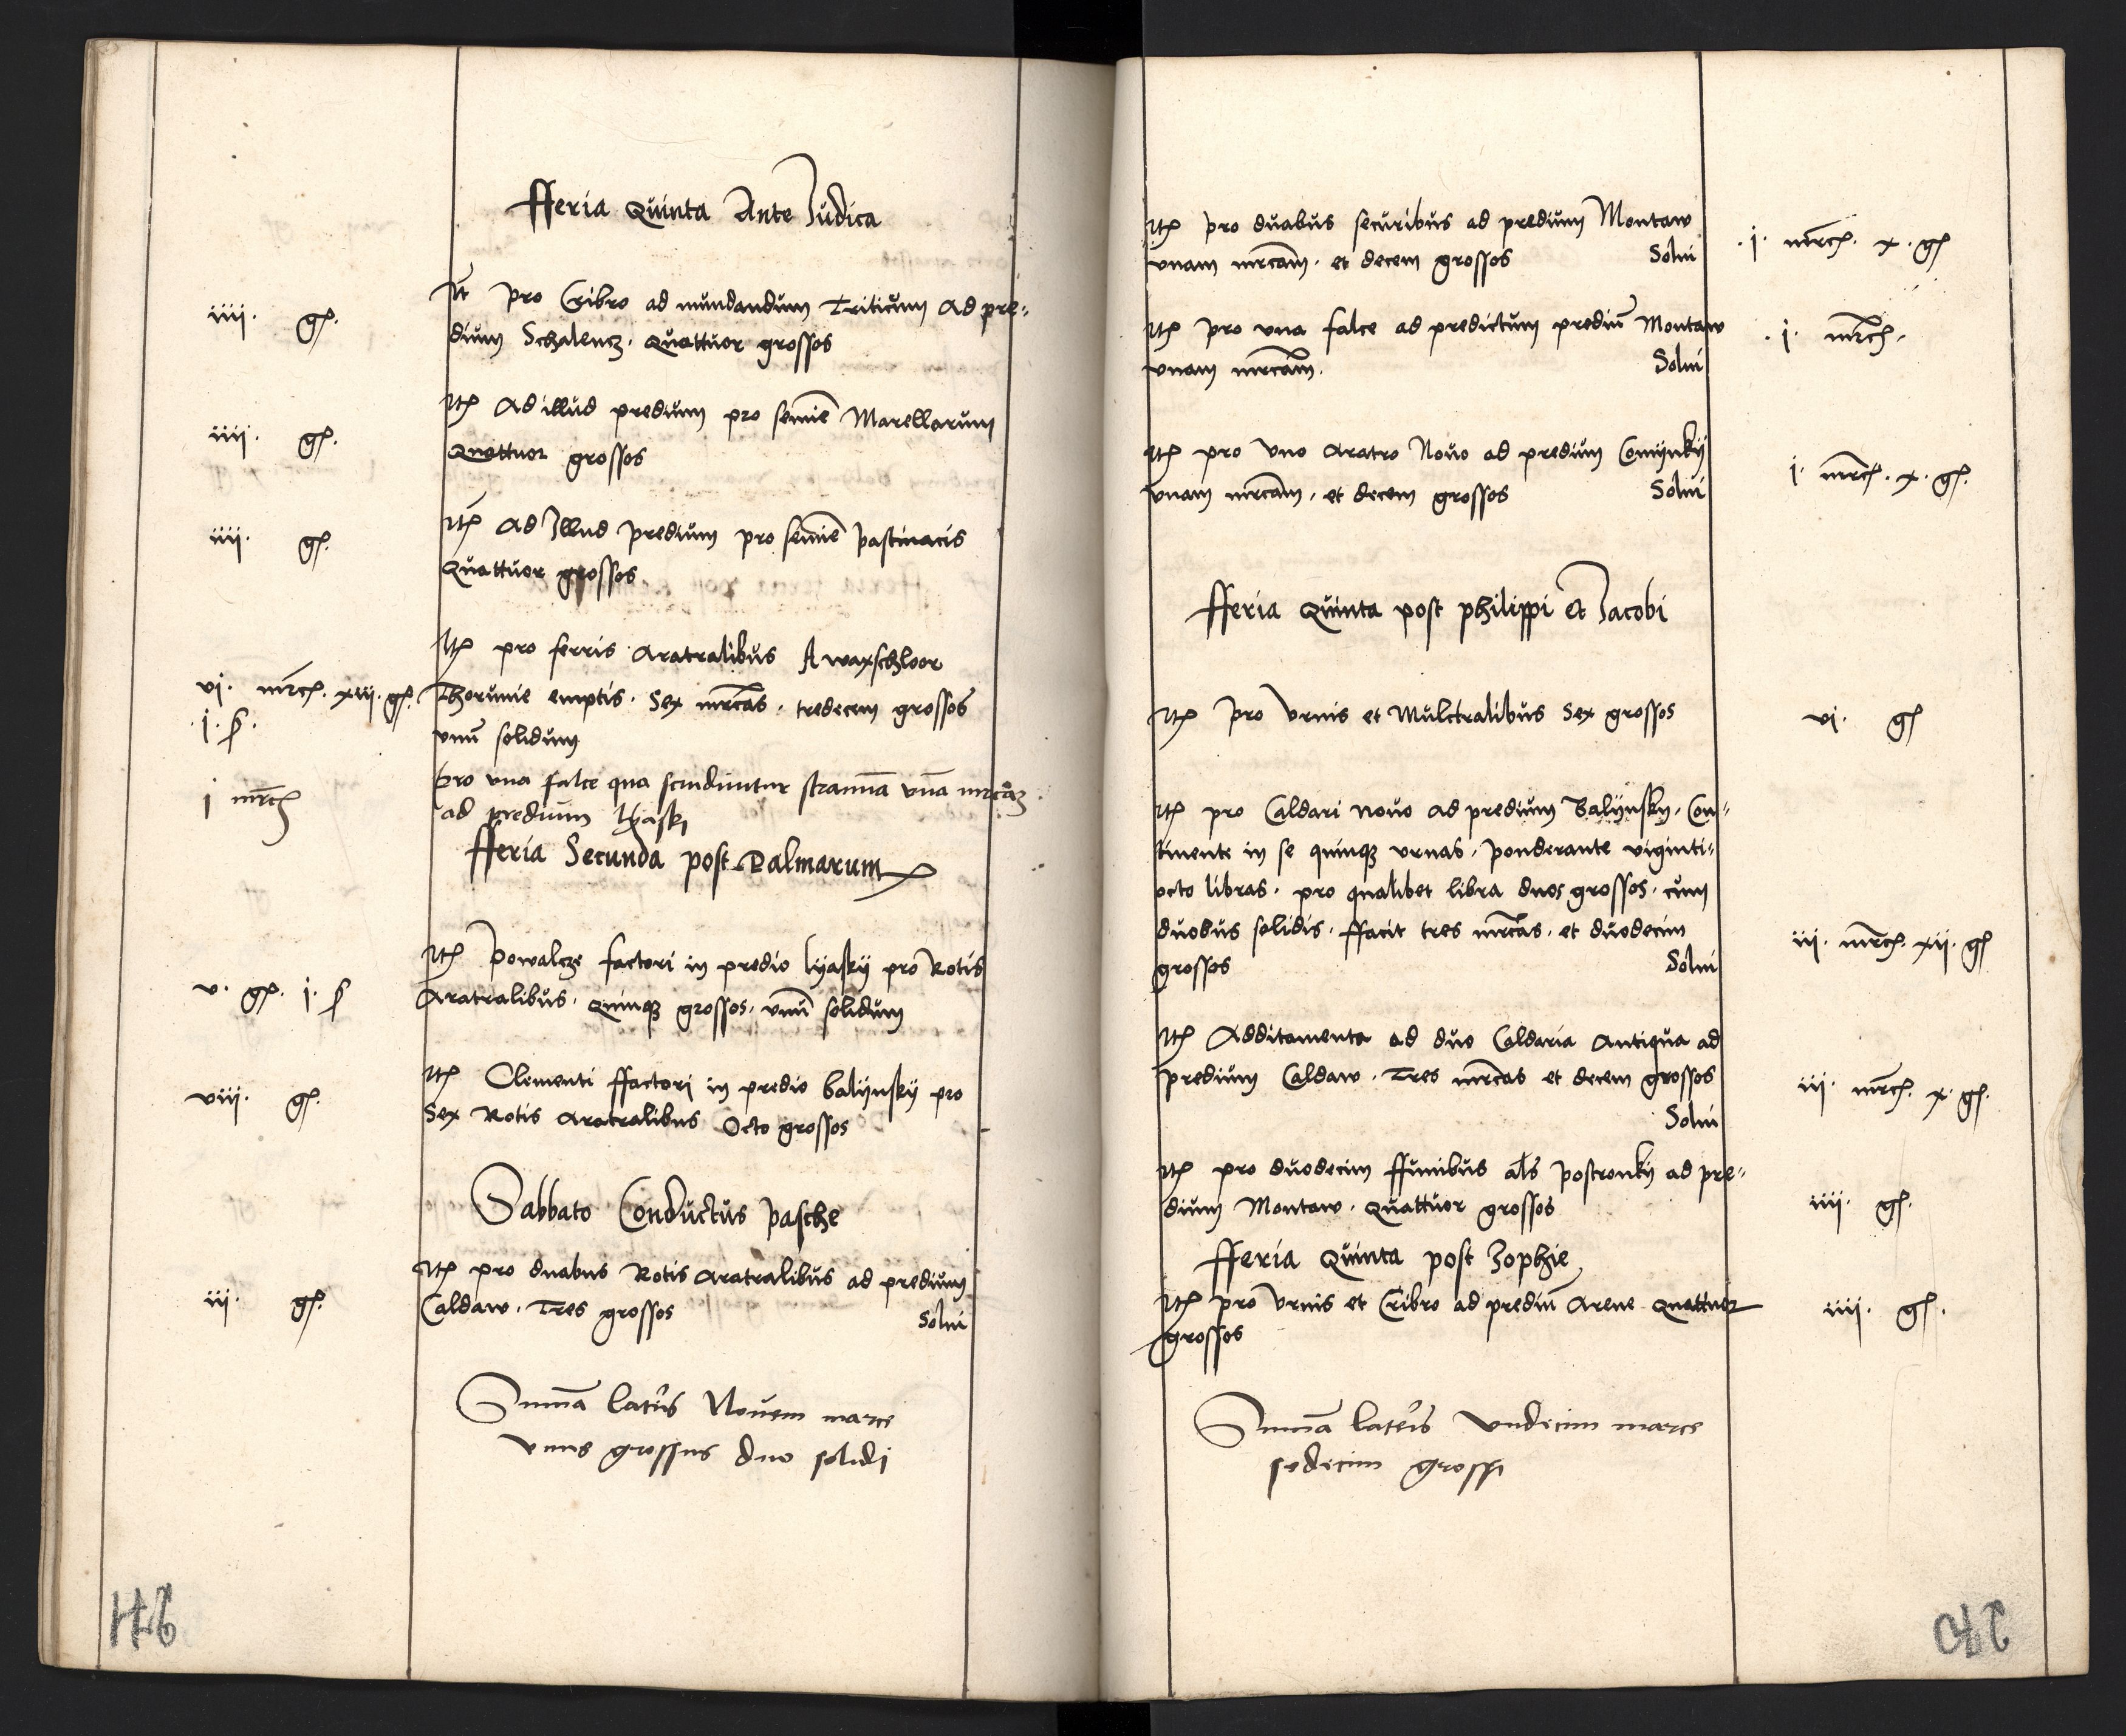 fferia Quinta Ante Judica
iiii. gᵱ.
It pro Cribro ad mundandum Triticum Ad pre-
dium Schalencz. Quattuor grossos
iiii. gᵱ.
Itᵱ Ad illud predium pro semīe Marellarum
Quattuor grossos
iiii. gᵱ.
Itᵱ Ad Illud predium pro semīe pastinacis
Quattuor grossos
Itᵱ pro ferris aratralibus A waxschloor
vi. mrcᵱ. xiii. gᵱ.
Thorunie emptis. Sex mrcas. tredecem grossos
.j. ꝭ.
vnū solidum
j mrcᵱ
pro vna falce qua scinduntur stramīa vnā mrcaz
ad predium lyaskj
fferia Secunda post Palmarum
v. gᵱ. j. ꝭ
Itᵱ Powalcze factori in predio lyasky pro Rotis
Aratralibus. quinqꝫ grossos. vnū solidum
viii. gᵱ.
Itᵱ Clementi ffactori in predio balijnskij pro
Sex Rotis aratralibus Octo grossos
Sabbato Conductus pasche
iii. gᵱ.
Itᵱ pro duabus Rotis aratralibus ad predium
Caldaw. Tres grossos Solui
Sum̄a lateris Nouem marce
vnus grossus duo solidi
Itᵱ pro duabus securibus ad predium Montaw
vnam mrcam. et decem grossos Solui
.j. mrcᵱ. x. gᵱ
Itᵱ pro vna falce ad predictum prediū Montaw
vnam mrcam. Solui
.j. mrcᵱ.
Itᵱ pro vno aratro Nouo ad predium Comijnkij
vnam mrcam. et decem grossos Solui
j. mrcᵱ. x. gᵱ.
fferia Quinta post philippi Et Jacobi
Itᵱ pro vrnis et Mulctralibus Sex grossos
vi. gᵱ
Itᵱ pro Caldari nouo ad predium Balijnsky. Con-
tinente in se quinqꝫ vrnas. ponderante viginti-
octo libras. pro qualibet libra duos grossos. cum
duobus solidis. ffacit tres mrcas. et duodecim
grossos Solui
iii. mrcᵱ. xii. gᵱ
Itᵱ Additamenta ad duo Caldaria antiqua ad
predium Caldaw. Tres mrcas et decem grossos
Solui
iii. mrcᵱ. x. gᵱ.
Itᵱ pro duodecim ffunibus als postronkij ad pre-
dium Montaw. Quattuor grossos
iiii. gᵱ.
fferia Quinta post Zophie
Itᵱ pro vrnis et Cribro ad prediū Arene Quattuor
grossos
iiii. gᵱ.
Sum̄a lateris vndecim marce
sedecim grossi